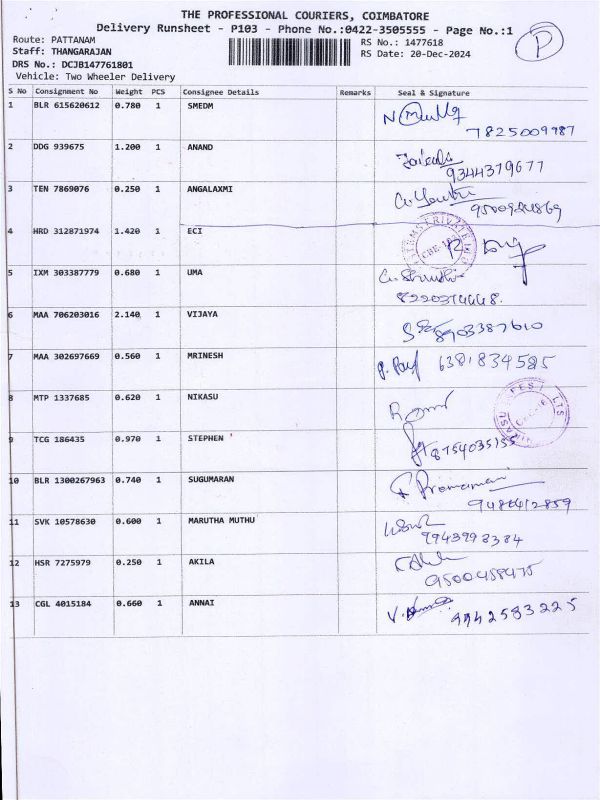 THE PROFESSIONAL COURIERS, COIMBATORE
Delivery Runsheet - P103 - Phone No.:0422-3505555 - Page No.:1
Route: PATTANAM RS No.: 1477618
Staff: THANGARAJAN RS Date: 20-Dec-2024
DRS No.: DCJB147761801
Vehicle: Two Wheeler Delivery
P
S No Consignment No Weight PCS Consignee Details Remarks Seal & Signature
1 BLR 615620612 0.780 1 SMEDM
7825009787
2 DDG 939675 1.200 1 ANAND
9344379677
3 TEN 7869076 0.250 1 ANGALAXMI
4 HRD 312871974 1.420 1 ECI
5 IXM 303387779 0.680 1 UMA
6 MAA 706203016 2.140 1 VIJAYA
8903387610
7 MAA 302697669 0.560 1 MRINESH
6381834525
8 MTP 1337685 0.620 1 NIKASU
9 TCG 186435 0.970 1 STEPHEN
8754035155
10 BLR 1300267963 0.740 1 SUGUMARAN
9486412859
11 SVK 10578630 0.600 1 MARUTHA MUTHU
9943993384
12 HSR 7275979 0.250 1 AKILA
9500458475
13 CGL 4015184 0.660 1 ANNAI
9942583225